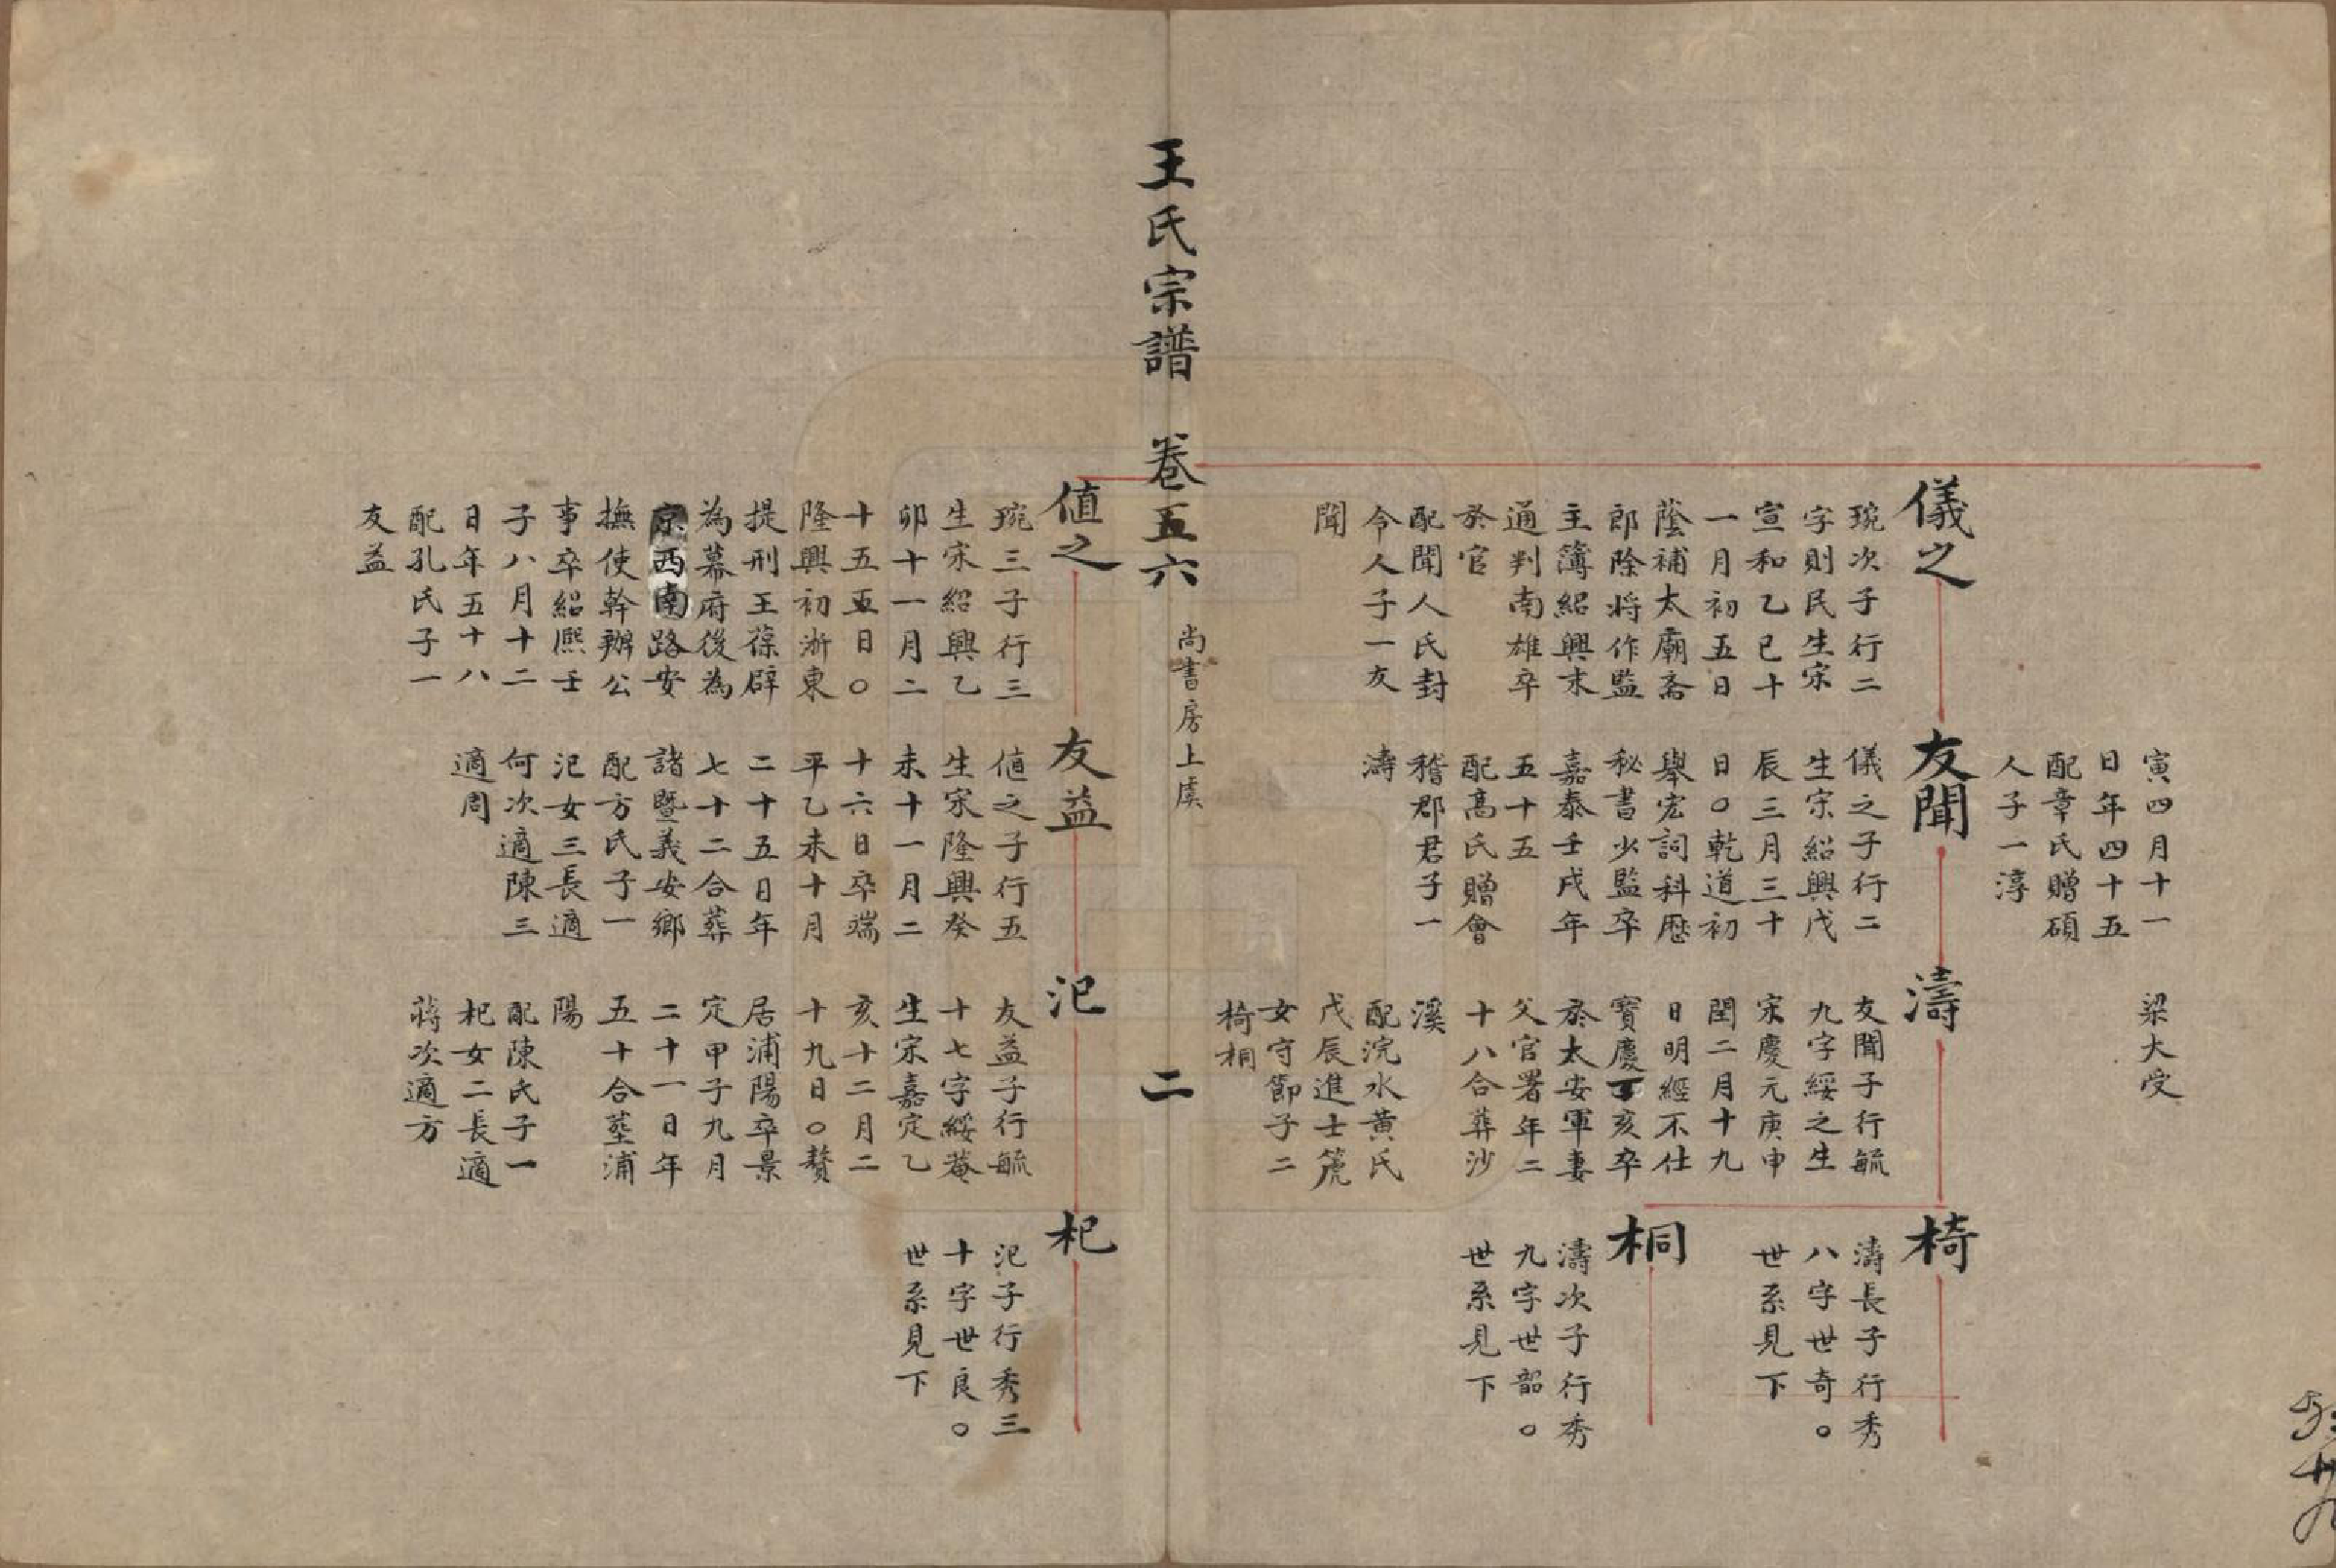 寅四月十一
日年四十五
配章氏贈碩
人子一淳
梁大受
儀之
琬次子行二
字則民生宋
宣和乙巳十
一月初五日
蔭補太廟齋
郎除將作監
主簿紹興末
通判南雄卒
於官
配聞人氏封
令人子一友
聞
友聞
儀之子行二
生宗紹興戊
辰三月三十
日○乾道初
舉宏詞科歷
秘書少監卒
嘉泰壬戌年
五十五
配高氏贈會
稽郡君子一
濤
濤
友聞子行毓
九字綏之生
宋慶元庚申
閏二月十九
日明經不仕
寶慶丁亥卒
於太安軍妻
父官署年二
十八合葬沙
溪
配浣水黃氏
戊辰進士箎
女守節子二
椅桐
椅
濤長子行秀
八字世奇○
世系見下
桐
濤次子行秀
九字世韶○
世系見下
王氏宗譜 卷五六 尚書房上虞 二
值之
琬三子行三
生宋紹興乙
卯十一月二
十五五日○
隆興初浙東
提刑王葆辟
為幕府後為
京西南路安
撫使幹辦公
事卒紹熙壬
子八月十二
日年五十八
配孔氏子一
友益
友益
值之子行五
生宋隆興癸
未十一月二
十六日卒端
平乙未十月
二十五日年
七十二合葬
諸暨義安鄉
配方氏子一
汜女三長適
何次適陳三
適周
汜
友益子行毓
十七字綏菴
生宋嘉定乙
亥十二月二
十九日○贅
居浦陽卒景
定甲子九月
二十一日年
五十合塟浦
陽
配陳氏子一
杞女二長適
蔣次適方
杞
汜子行秀三
十字世良○
世系見下